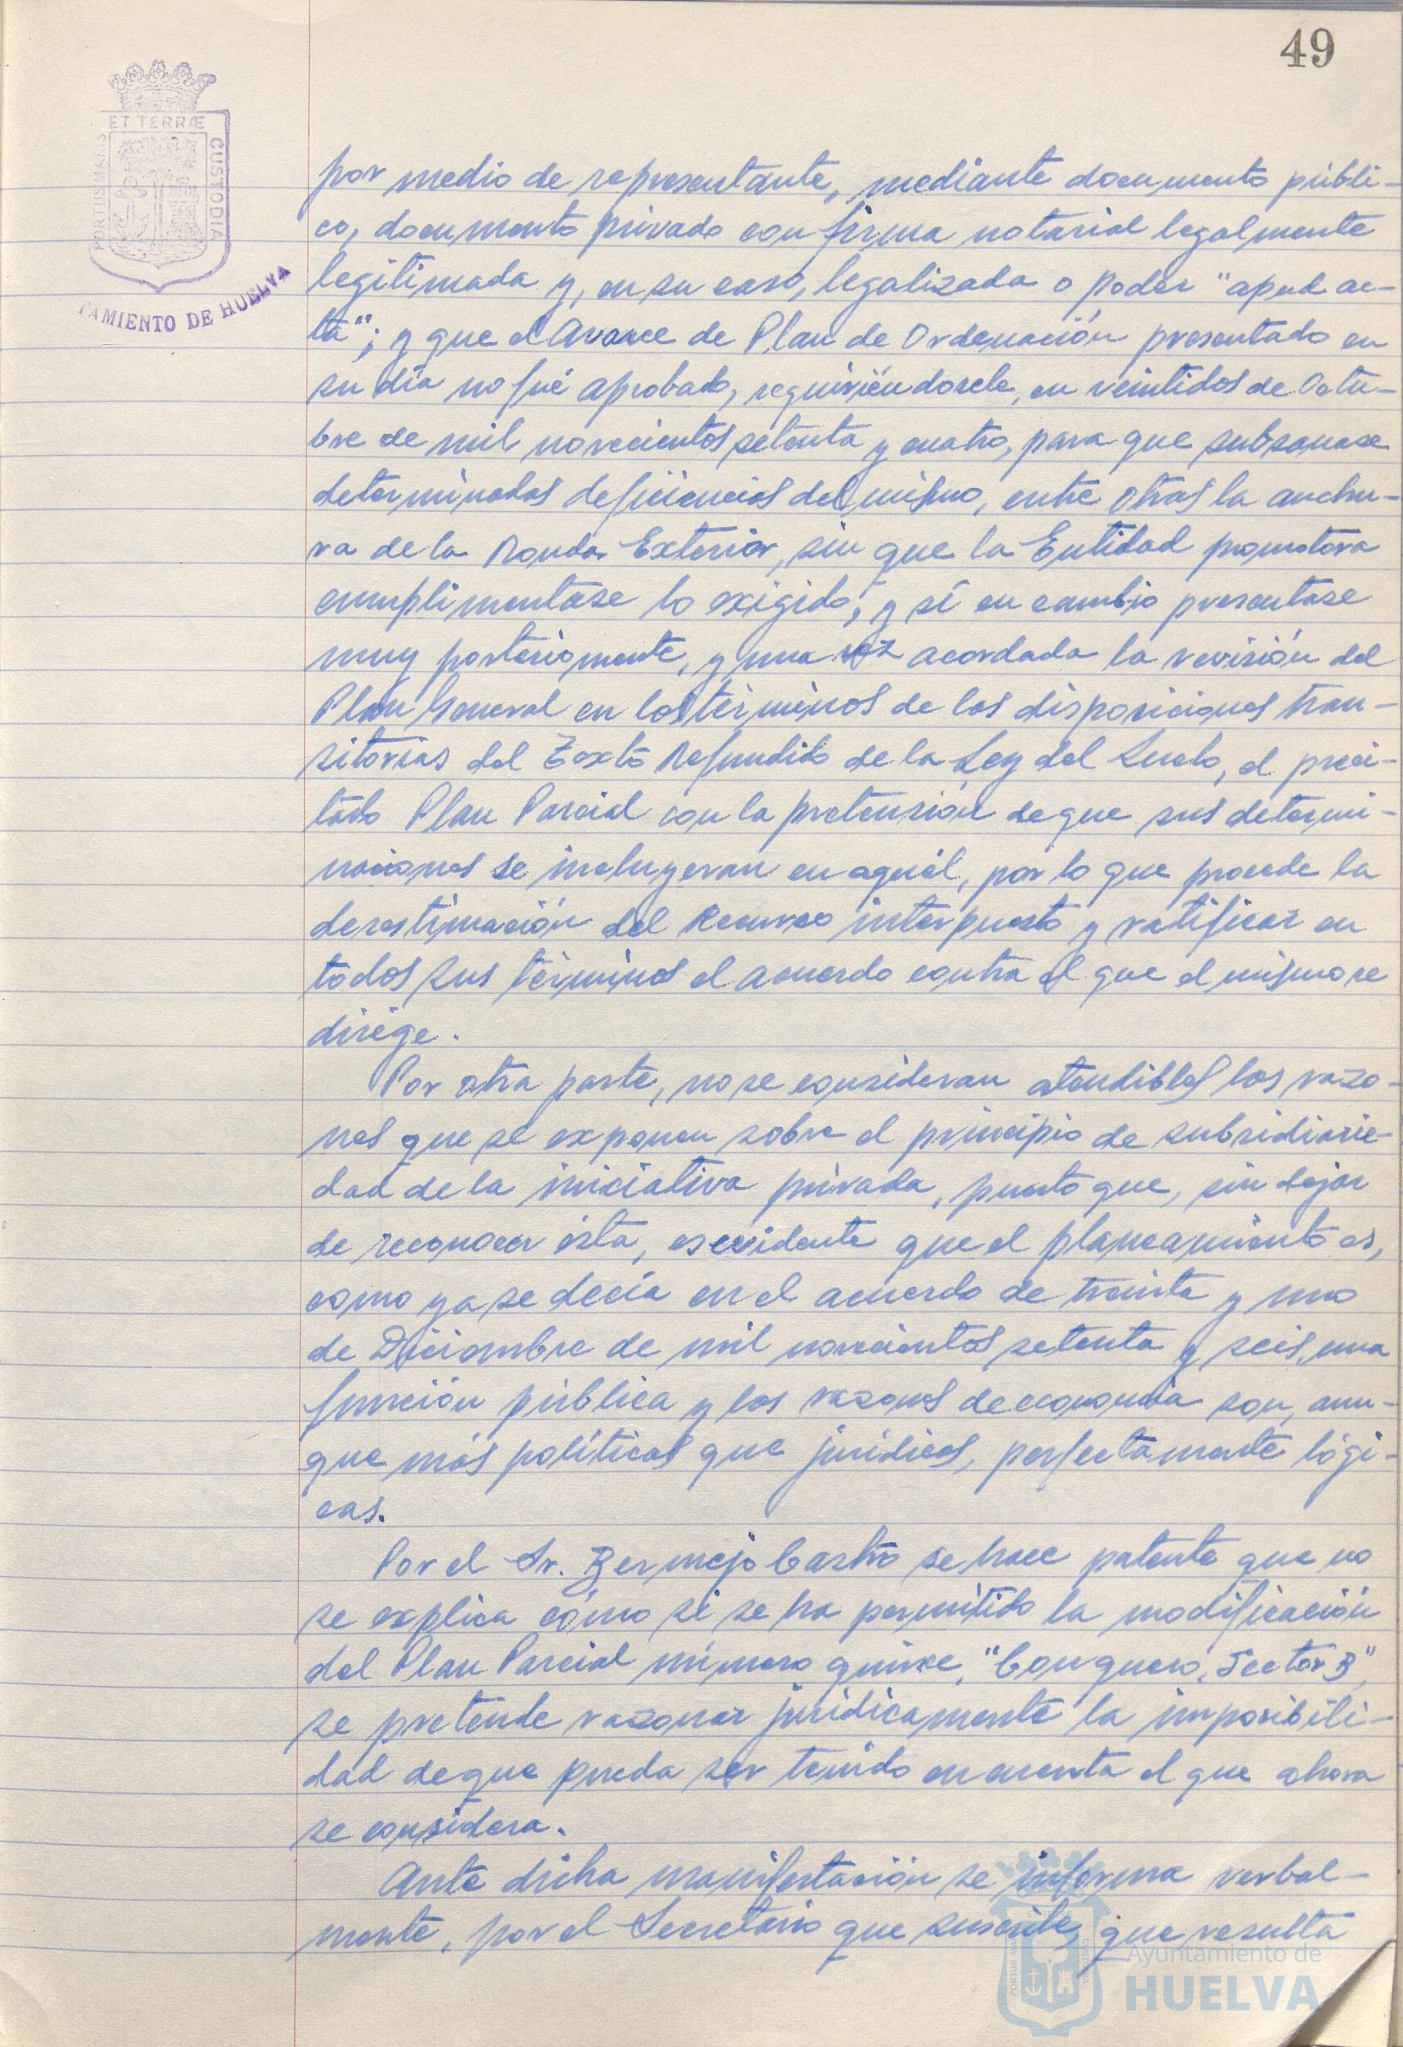 49
ET TERRÆ
PORTUS MARIS
CUSTODIA
TAMIENTO DE HUELVA
por medio de representante, mediante documento públi-
co, documento privado con firma notarial legalmente
legitimada y, en su caso, legalizada o poder "apud ac-
ta"; y que el Avance de Plan de Ordenación presentado en
su día no fué aprobado, requiriéndosele, en veintidos de Octu-
bre de mil novecientos setenta y cuatro, para que subsanase
determinadas deficiencias del mismo, entre otras la anchu-
ra de la Ronda Exterior, sin que la Entidad promotora
cumplimentase lo exigido, y sí en cambio presentase
muy posteriormente, y una vez acordada la revisión del
Plan General en los términos de las disposiciones tran-
sitorias del Texto Refundido de la Ley del Suelo, el preci-
tado Plan Parcial con la pretensión de que sus determi-
naciones se incluyeran en aquél, por lo que procede la
desestimación del Recurso interpuesto y ratificar en
todos sus términos el acuerdo contra el que el mismo se
dirige.
Por otra parte, no se consideran atendibles las razo-
nes que se exponen sobre el principio de subsidiarie-
dad de la iniciativa privada, puesto que, sin dejar
de reconocer ésta, es evidente que el planeamiento es,
como ya se decía en el acuerdo de treinta y uno
de Diciembre de mil novecientos setenta y seis, una
función pública y las razones de economía son, aun-
que más políticas que jurídicas, perfectamente lógi-
cas.
Por el Sr. Bermejo Castro se hace patente que no
se explica cómo si se ha permitido la modificación
del Plan Parcial número quince, "Conquero, Sector B",
se pretende razonar jurídicamente la imposibili-
dad de que pueda ser tenido en cuenta el que ahora
se considera.
Ante dicha manifestación se informa verbal-
mente, por el Secretario que suscribe, que resulta
Ayuntamiento de
HUELVA